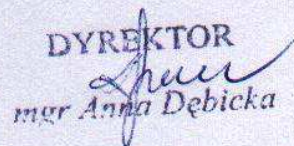 DYREKTOR
mgr Anna Dębicka